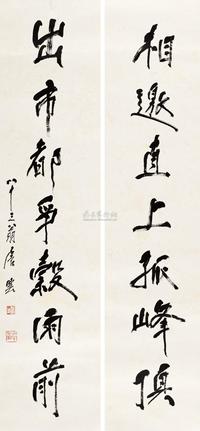 相邀直上孤峰顶
出市都争穀雨前
八十三翁唐云